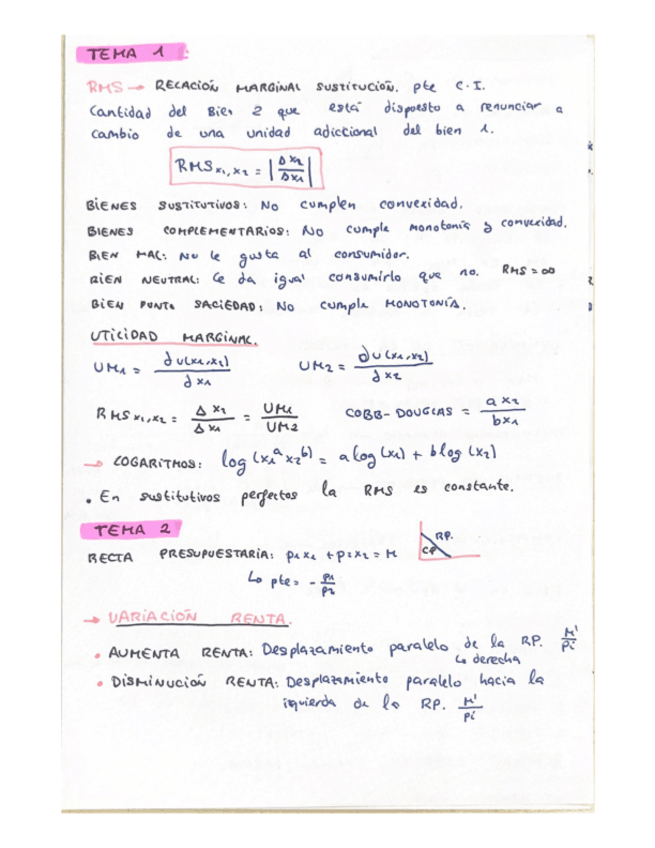 TEMA 1:
RMS → RELACIÓN MARGINAL SUSTITUCIÓN. pte C.I.
Cantidad del Bien 2 que está dispuesto a renunciar a
cambio de una unidad adiccional del bien 1.
RMS x1,x2 = |Δx2/Δx1|
BIENES SUSTITUTIVOS: No cumplen convexidad.
BIENES COMPLEMENTARIOS: No cumple monotonía y convexidad.
BIEN MAL: No le gusta al consumidor.
BIEN NEUTRAL: Le da igual consumirlo que no. RMS = ∞
BIEN PUNTO SACIEDAD: No cumple MONOTONÍA.
UTILIDAD MARGINAL.
UM1 = ∂u(x1,x2)/∂x1 UM2 = ∂u(x1,x2)/∂x2
RMS x1,x2 = Δx2/Δx1 = UM1/UM2 COBB-DOUGLAS = ax2/bx1
→ LOGARITMOS: log(x1^a x2^b) = a log(x1) + b log(x2)
• En sustitutivos perfectos la RMS es constante.
TEMA 2
RECTA PRESUPUESTARIA: p1x1 + p2x2 = M RP. CP
↳ pte = - p1/p2
→ VARIACIÓN RENTA.
• AUMENTA RENTA: Desplazamiento paralelo de la RP. M'/pi
↳ derecha
• DISMINUCIÓN RENTA: Desplazamiento paralelo hacia la
izquierda de la RP. M'/pi